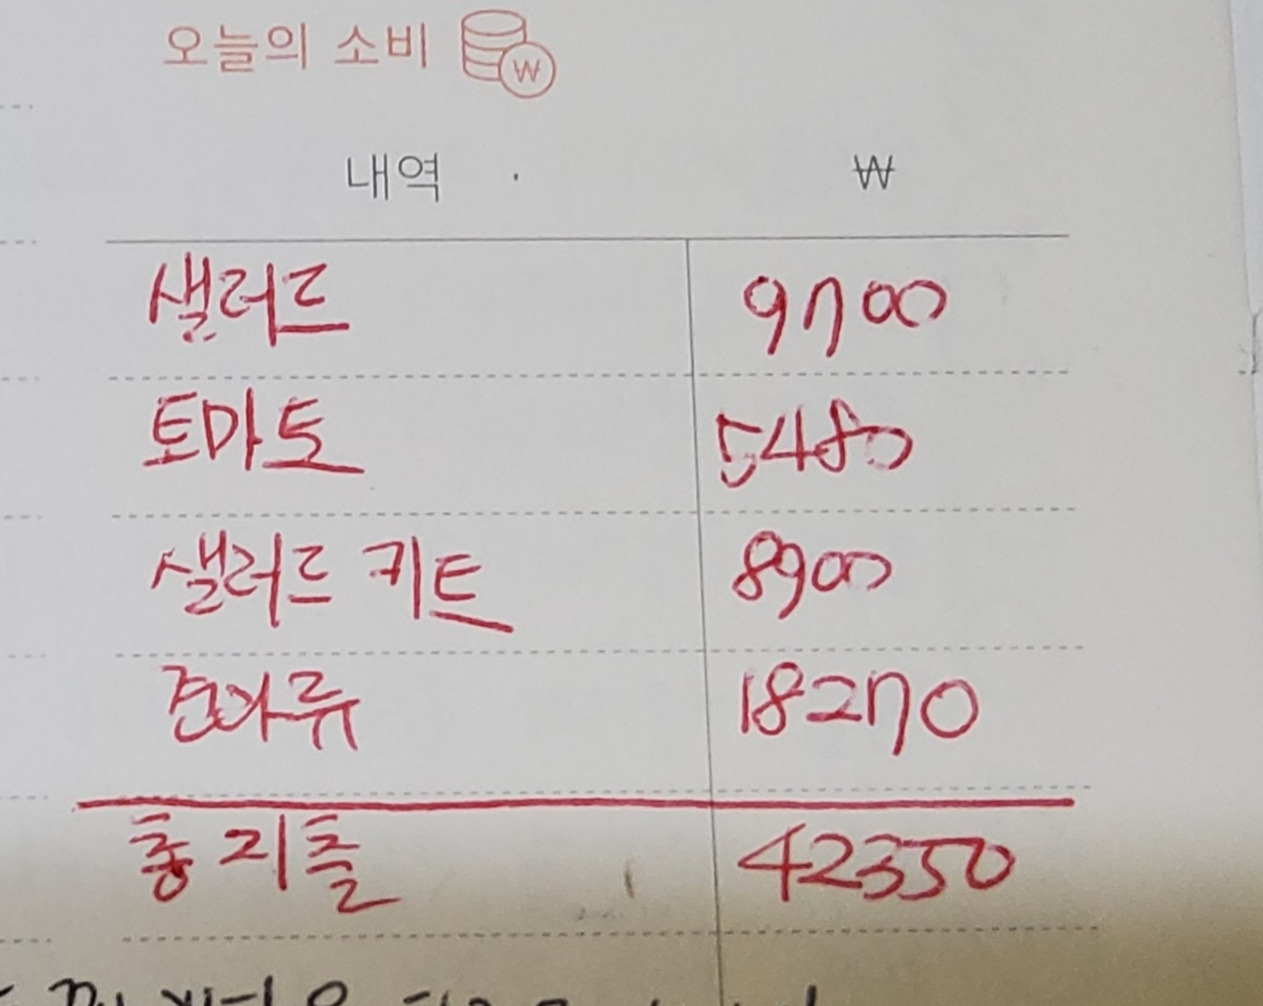 오늘의 소비
내역 ₩
샐러드 9700
토마토 5480
샐러드 키트 8900
견과류 18270
총 지출 42350